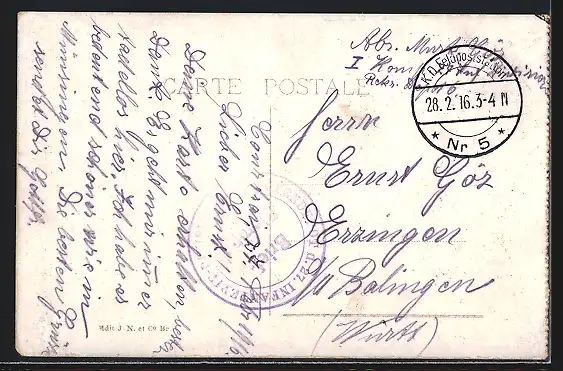 CARTE POSTALE
Abs. Musk.
K.D. Feldpoststation
28.2.16.3-4 N
* Nr 5 *
Herrn
Ernst Göz
Erzingen
O/A Balingen
(Württ)
Lieber Ernst!
Deine Karte erhalten, besten
Dank. Es geht mir immer
tadellos hier. Ich habe es
bedeutend schöner wie in
Münsingen. Die besten Grüße
sendet Dir
27. INFANTERIE
Brief
Edit J. N. et Co